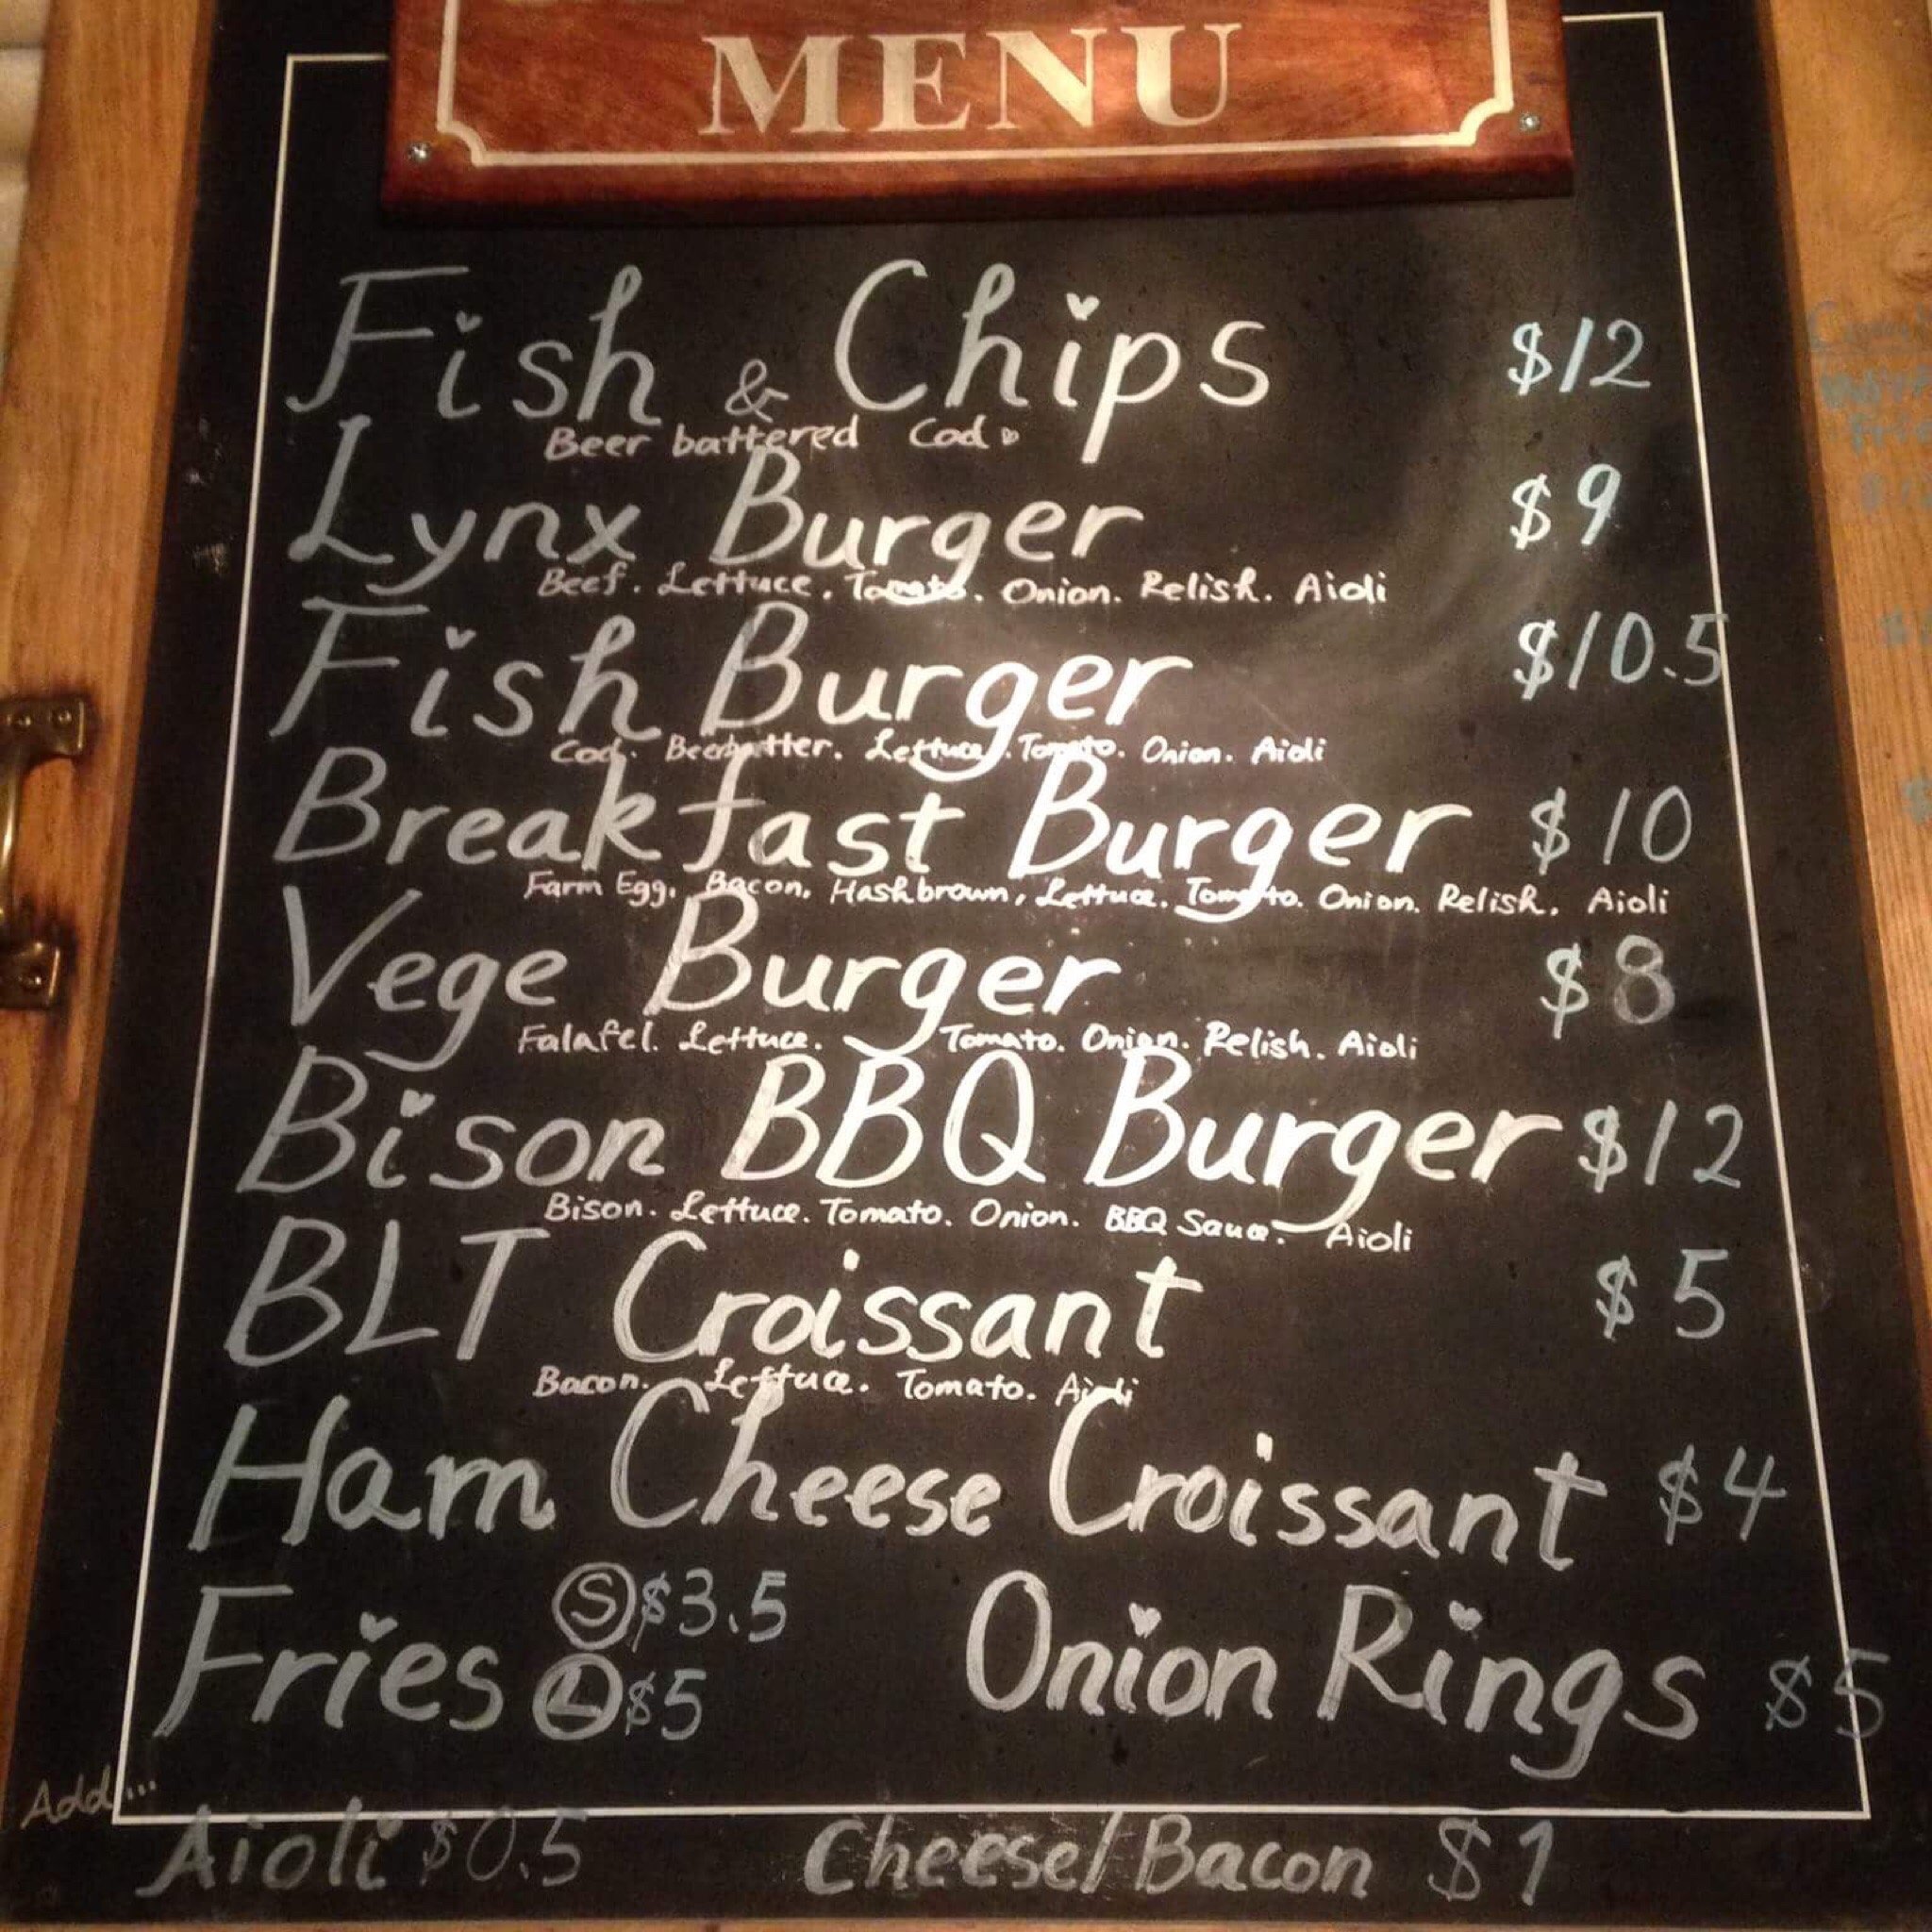 MENU
Fish & Chips $12
Beer battered Cod
Lynx Burger $9
Beef. Lettuce. Tomato. Onion. Relish. Aioli
Fish Burger $10.5
Cod. Beerbatter. Lettuce. Tomato. Onion. Aioli
Breakfast Burger $10
Farm Egg. Bacon. Hashbrown, Lettuce. Tomato. Onion. Relish. Aioli
Vege Burger $8
Falafel. Lettuce. Tomato. Onion. Relish. Aioli
Bison BBQ Burger $12
Bison. Lettuce. Tomato. Onion. BBQ Sauce. Aioli
BLT Croissant $5
Bacon. Lettuce. Tomato. Aioli
Ham Cheese Croissant $4
Fries S $3.5 L $5 Onion Rings $5
Add...
Aioli $0.5 Cheese/Bacon $1